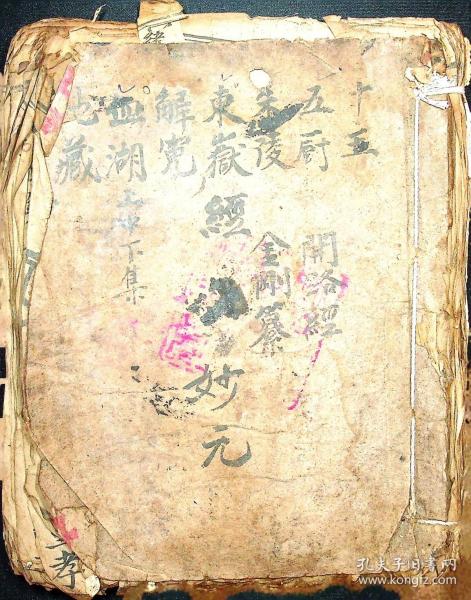 十五
五厨 開路經
朱陵 金剛纂
東嶽經 妙元
解冤
血湖上中下集
地藏
孝
孔夫子旧书网
www.kongfz.com